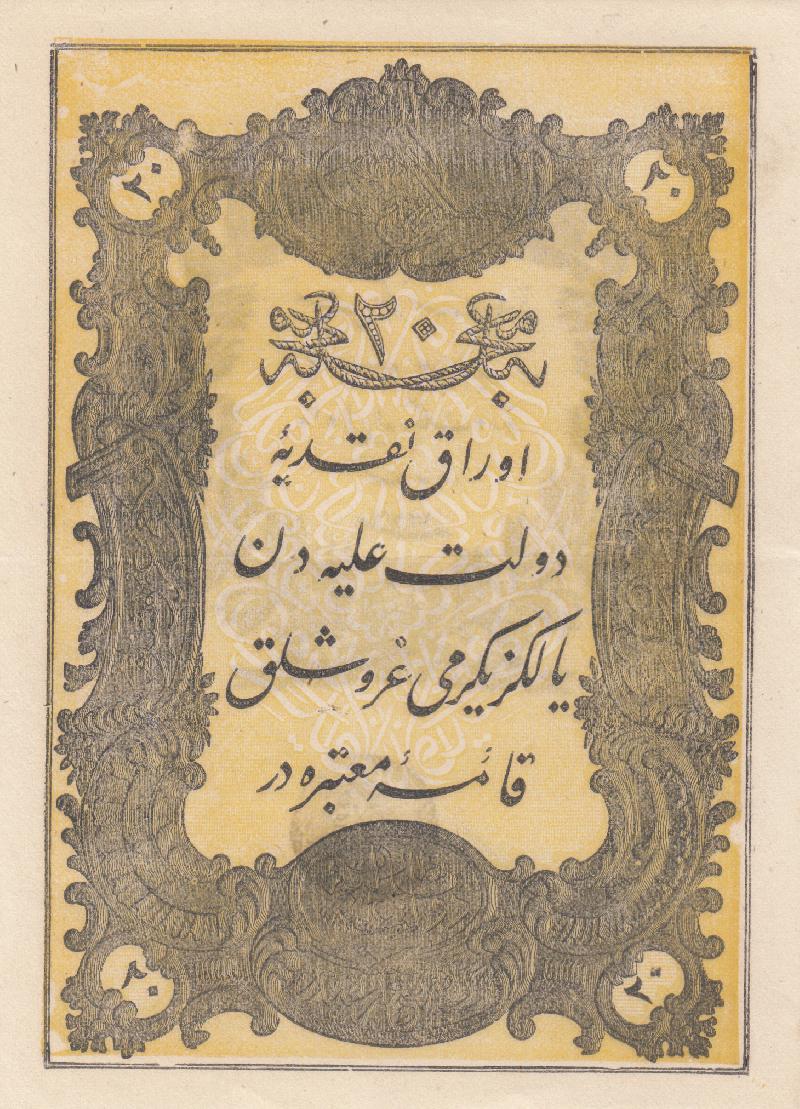 ٢٠ ٢٠
٢٠
اوراق نقدیهٔ
دولت علیه دن
یالکز یکرمی غروشلق
قائمهٔ معتبره در
٢٠ ٢٠